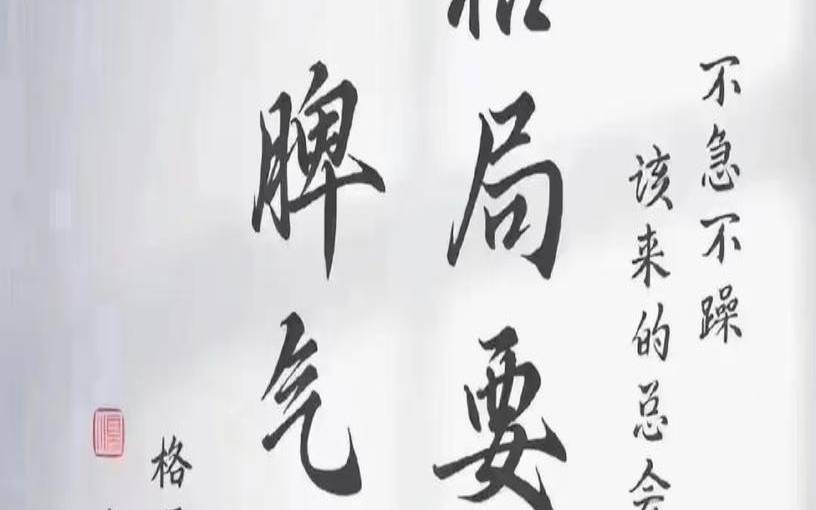 不急不躁
该来的总会
局要
脾气
格